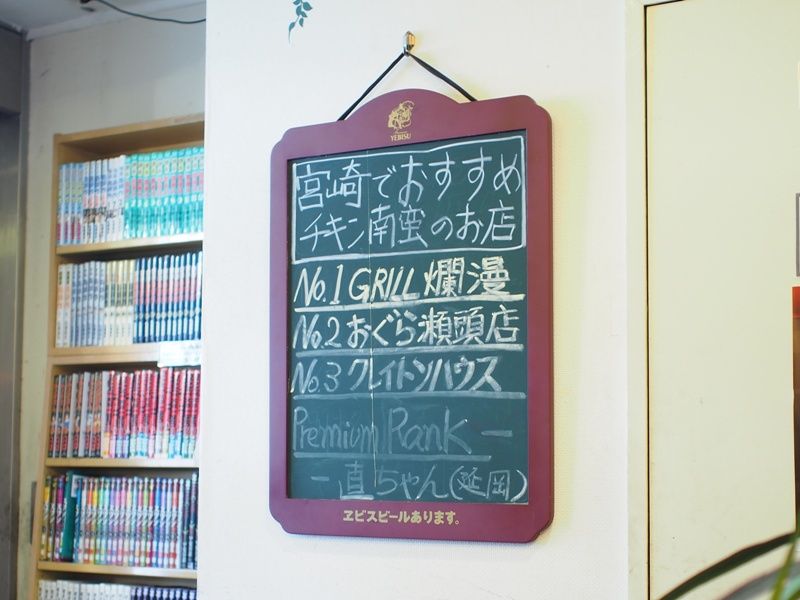 YEBISU
宮崎でおすすめ
チキン南蛮のお店
No.1 GRILL 爛漫
No.2 おぐら瀬頭店
No.3 クレイトンハウス
Premium Rank ー
ー直ちゃん(延岡)
ヱビスビールあります。